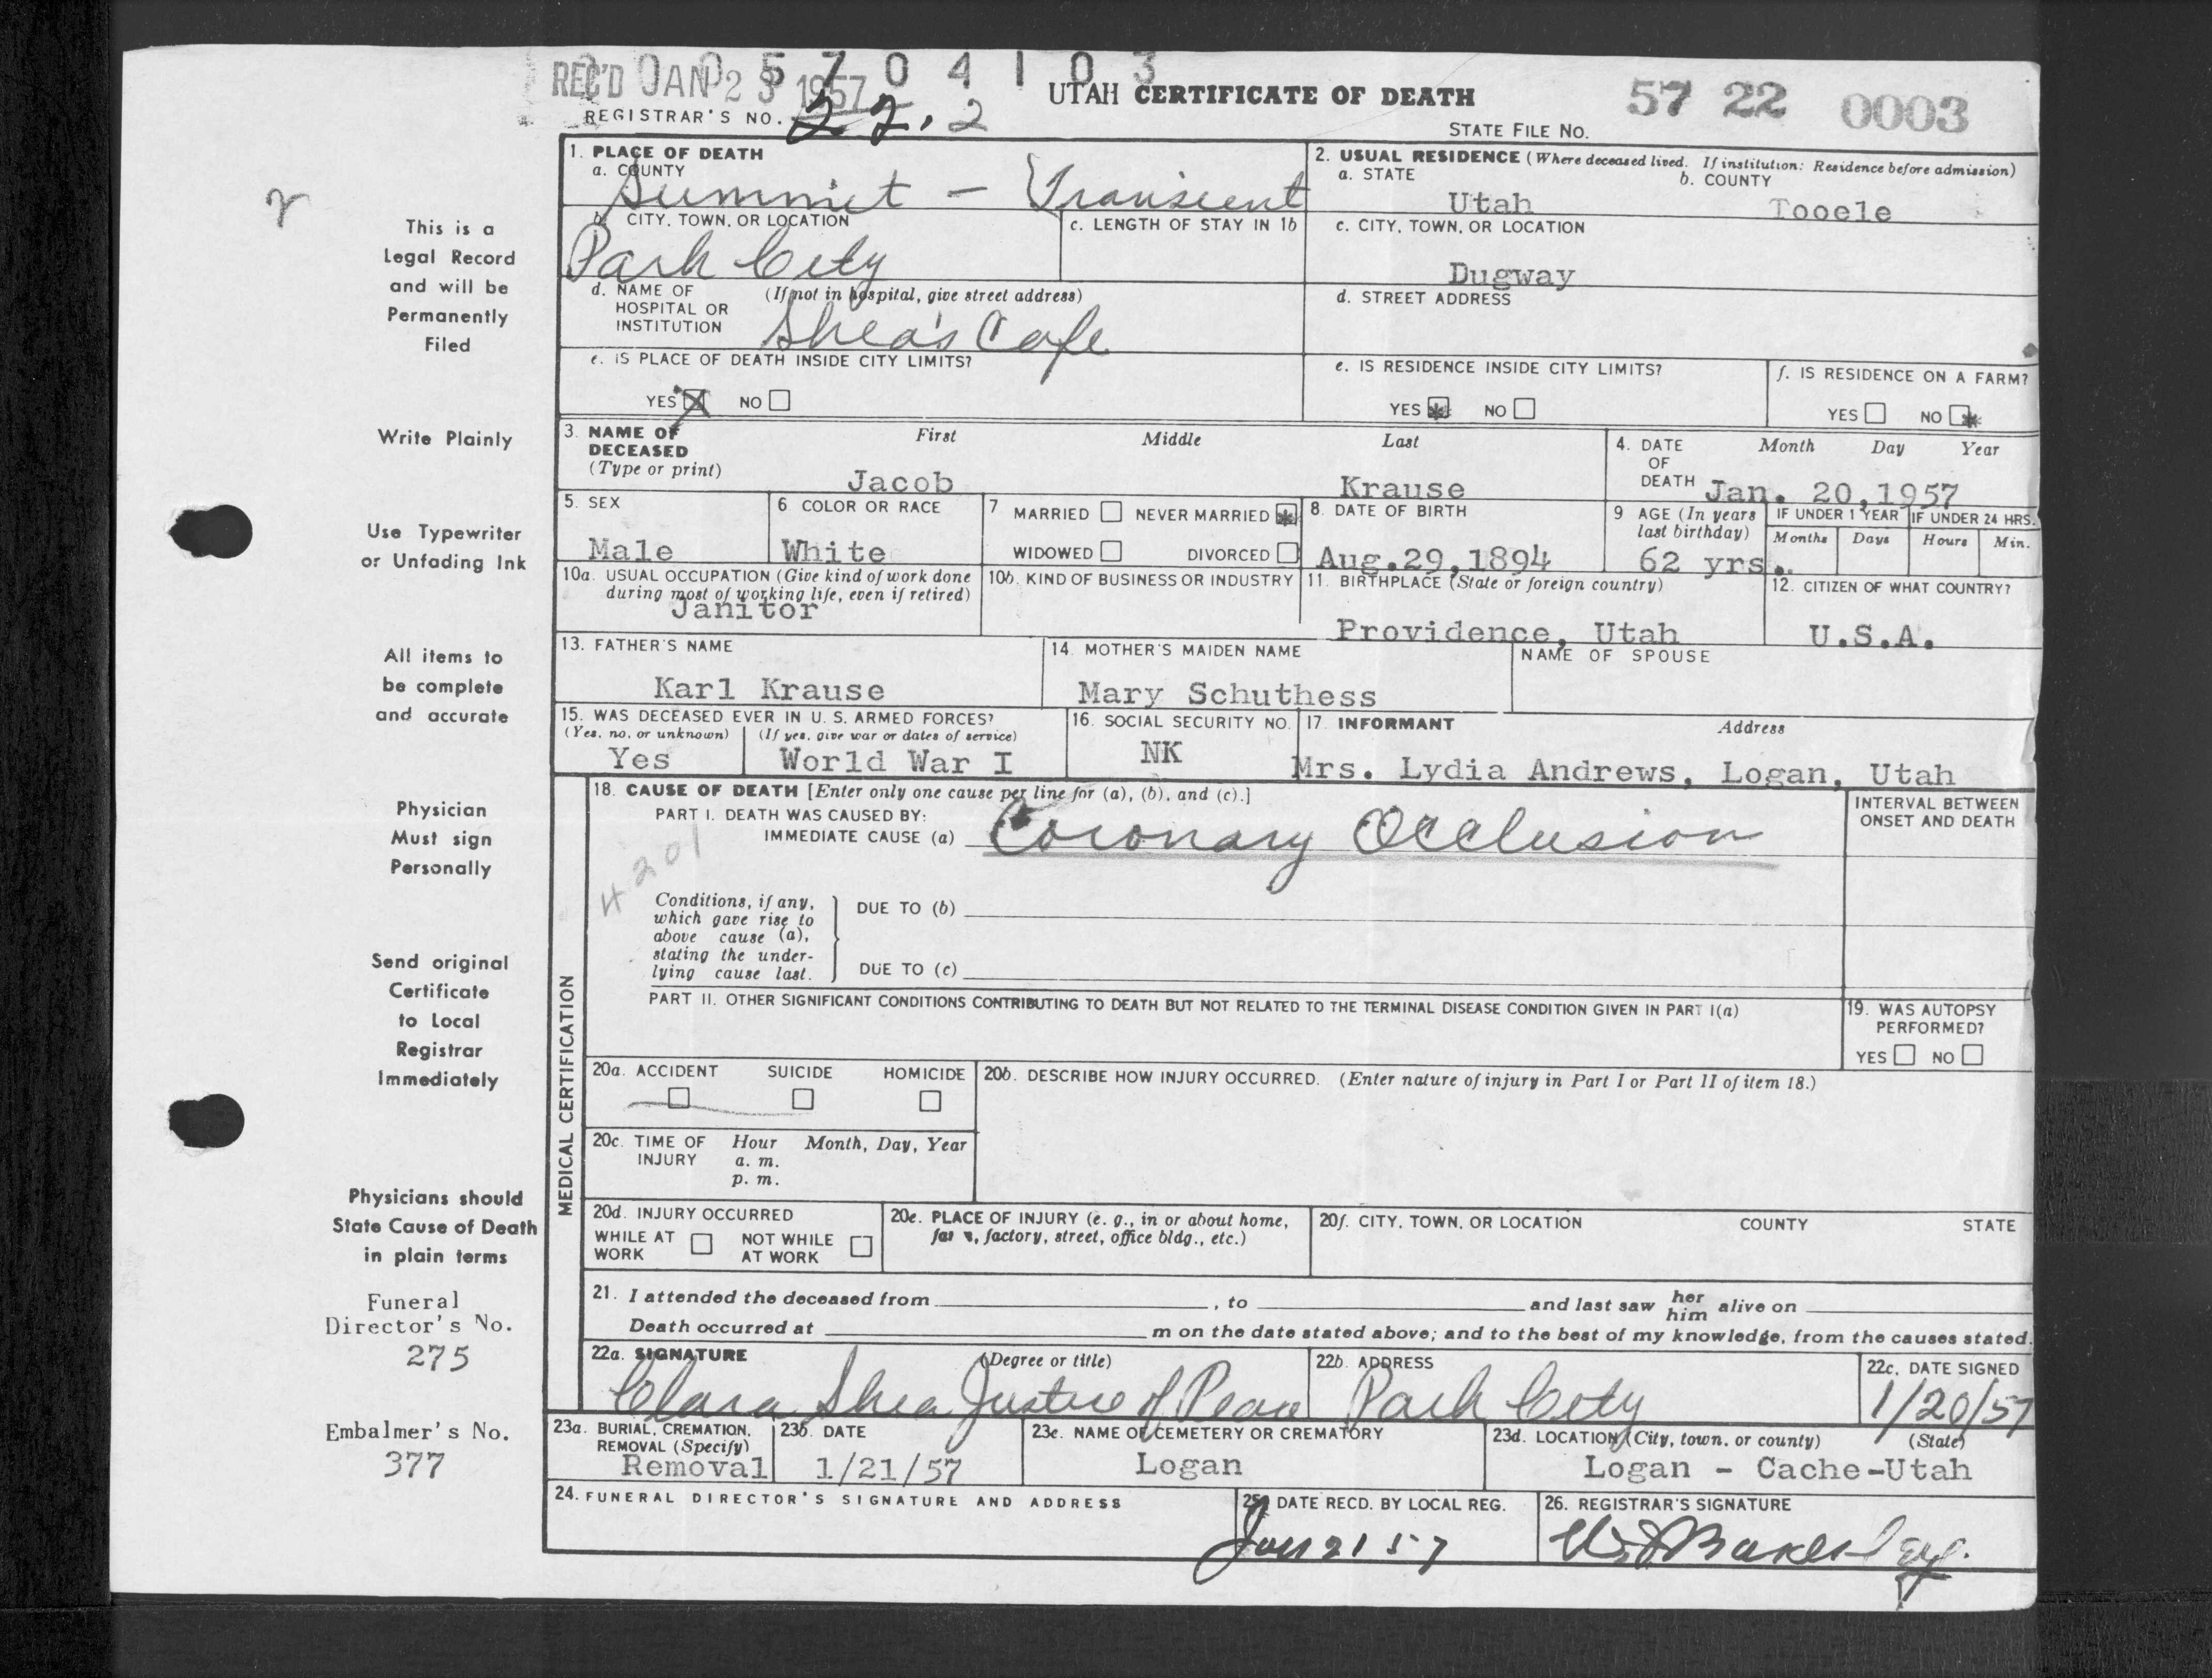 REC'D JAN 23 1957
5 7 0 4 1 0 3
UTAH CERTIFICATE OF DEATH
57 22 0003
REGISTRAR'S NO. 22. 2
STATE FILE No.
2
This is a
Legal Record
and will be
Permanently
Filed
Write Plainly
Use Typewriter
or Unfading Ink
All items to
be complete
and accurate
Physician
Must sign
Personally
Send original
Certificate
to Local
Registrar
Immediately
Physicians should
State Cause of Death
in plain terms
Funeral
Director's No.
275
Embalmer's No.
377
1. PLACE OF DEATH
a. COUNTY
Summit – Transient
2. USUAL RESIDENCE (Where deceased lived. If institution: Residence before admission)
a. STATE b. COUNTY
Utah Tooele
b. CITY, TOWN, OR LOCATION c. LENGTH OF STAY IN 1b
Park City
c. CITY, TOWN, OR LOCATION
Dugway
d. NAME OF HOSPITAL OR INSTITUTION (If not in hospital, give street address)
Shea's Cafe
d. STREET ADDRESS
e. IS PLACE OF DEATH INSIDE CITY LIMITS?
YES X NO
e. IS RESIDENCE INSIDE CITY LIMITS?
YES * NO
f. IS RESIDENCE ON A FARM?
YES NO *
3. NAME OF DECEASED (Type or print) First Middle Last
Jacob Krause
4. DATE OF DEATH Month Day Year
Jan. 20,1957
5. SEX
Male
6 COLOR OR RACE
White
7 MARRIED NEVER MARRIED *
WIDOWED DIVORCED
8. DATE OF BIRTH
Aug.29,1894
9 AGE (In years last birthday)
62 yrs..
IF UNDER 1 YEAR IF UNDER 24 HRS.
Months Days Hours Min.
10a. USUAL OCCUPATION (Give kind of work done during most of working life, even if retired)
Janitor
10b. KIND OF BUSINESS OR INDUSTRY
11. BIRTHPLACE (State or foreign country)
Providence, Utah
12. CITIZEN OF WHAT COUNTRY?
U.S.A.
13. FATHER'S NAME
Karl Krause
14. MOTHER'S MAIDEN NAME
Mary Schuthess
NAME OF SPOUSE
15. WAS DECEASED EVER IN U. S. ARMED FORCES?
(Yes, no, or unknown) (If yes, give war or dates of service)
Yes World War I
16. SOCIAL SECURITY NO.
NK
17. INFORMANT Address
Mrs. Lydia Andrews, Logan, Utah
MEDICAL CERTIFICATION
18. CAUSE OF DEATH [Enter only one cause per line for (a), (b), and (c).]
PART I. DEATH WAS CAUSED BY:
IMMEDIATE CAUSE (a) Coronary Occlusion
INTERVAL BETWEEN
ONSET AND DEATH
4201
Conditions, if any,
which gave rise to
above cause (a),
stating the under-
lying cause last.
DUE TO (b)
DUE TO (c)
PART II. OTHER SIGNIFICANT CONDITIONS CONTRIBUTING TO DEATH BUT NOT RELATED TO THE TERMINAL DISEASE CONDITION GIVEN IN PART I(a)
19. WAS AUTOPSY
PERFORMED?
YES NO
20a. ACCIDENT SUICIDE HOMICIDE
20b. DESCRIBE HOW INJURY OCCURRED. (Enter nature of injury in Part I or Part II of item 18.)
20c. TIME OF INJURY Hour Month, Day, Year
a. m.
p. m.
20d. INJURY OCCURRED
WHILE AT WORK NOT WHILE AT WORK
20e. PLACE OF INJURY (e. g., in or about home,
factory, street, office bldg., etc.)
20f. CITY, TOWN, OR LOCATION COUNTY STATE
21. I attended the deceased from , to and last saw her him alive on
Death occurred at m on the date stated above; and to the best of my knowledge, from the causes stated.
22a. SIGNATURE (Degree or title)
Clara Shea Justice of Peace
22b. ADDRESS
Park City
22c. DATE SIGNED
1/20/57
23a. BURIAL, CREMATION, REMOVAL (Specify)
Removal
23b. DATE
1/21/57
23c. NAME OF CEMETERY OR CREMATORY
Logan
23d. LOCATION (City, town, or county) (State)
Logan - Cache-Utah
24. FUNERAL DIRECTOR'S SIGNATURE AND ADDRESS
25. DATE RECD. BY LOCAL REG.
Jan 21 57
26. REGISTRAR'S SIGNATURE